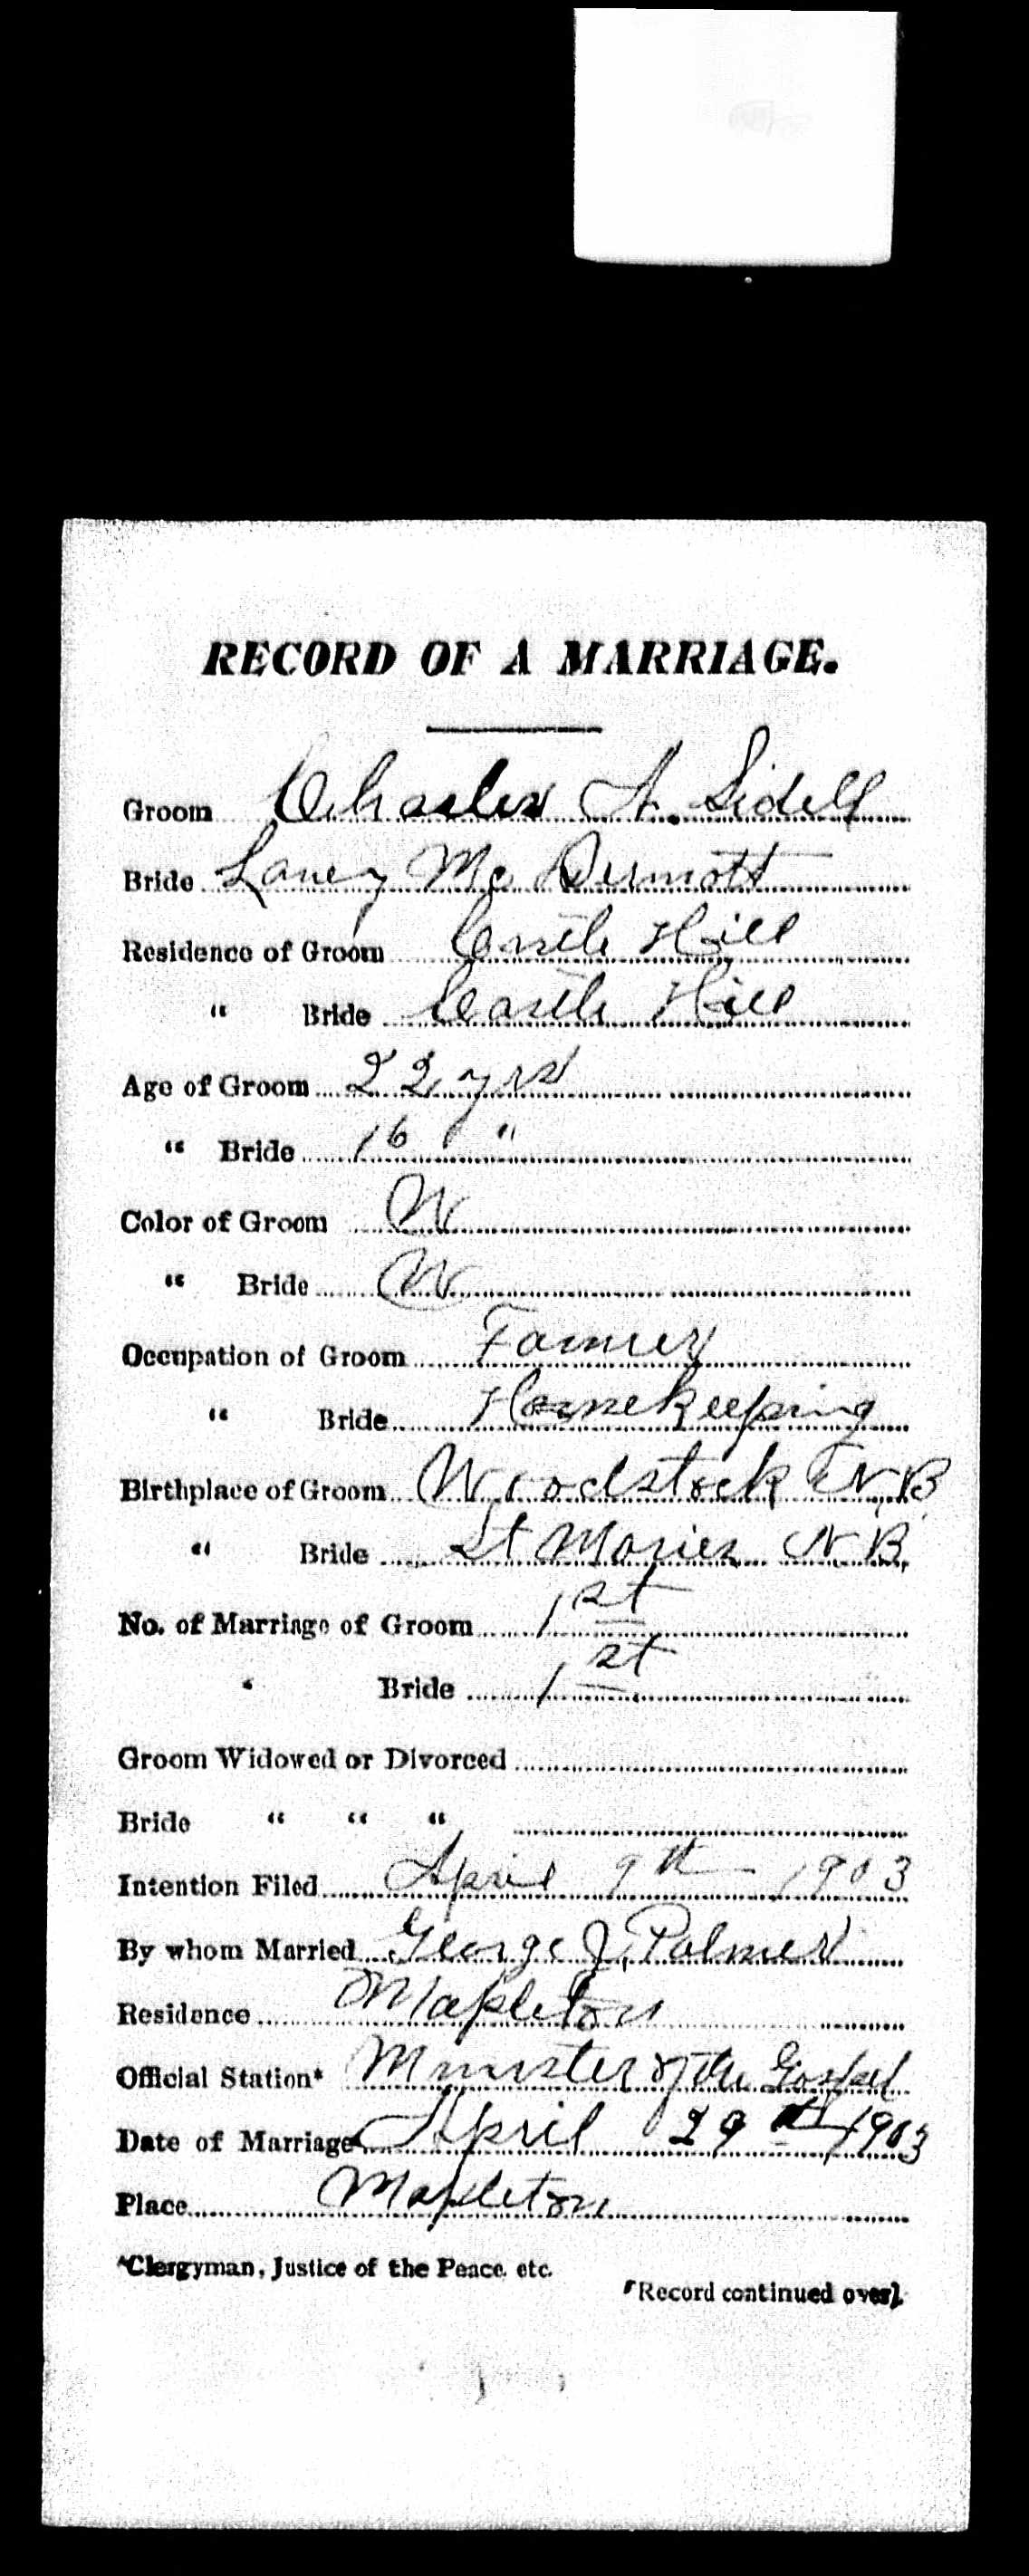 RECORD OF A MARRIAGE.
Groom Charles A. Sidell
Bride Laney Mc Dermott
Residence of Groom Castle Hill
" Bride Castle Hill
Age of Groom 22 yrs
" Bride 16 "
Color of Groom W
" Bride W
Occupation of Groom Farmer
" Bride Housekeeping
Birthplace of Groom Woodstock N.B
" Bride St Maries N.B.
No. of Marriage of Groom 1st
" Bride 1st
Groom Widowed or Divorced
Bride " " "
Intention Filed April 9th 1903
By whom Married George J. Palmer
Residence Mapleton
Official Station* Minister of the Gospel
Date of Marriage April 29th 1903
Place Mapleton
*Clergyman, Justice of the Peace, etc.
[Record continued over].